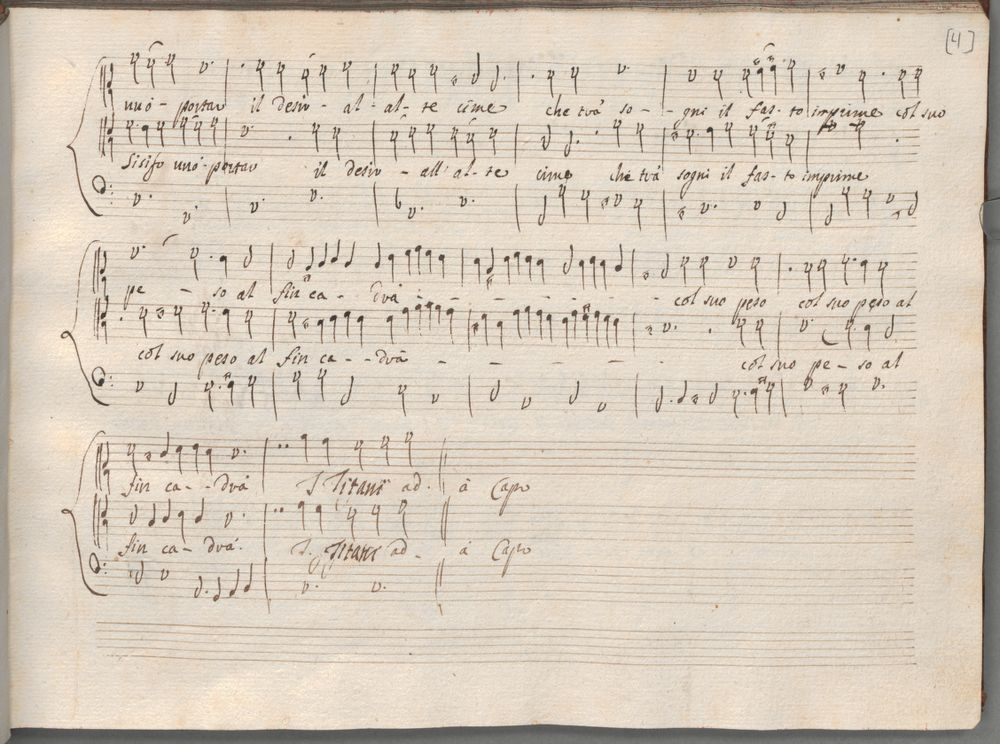 [4]
vuò - portar il desir - al - al - te cime che trà so - - gni il fas - to imprime col suo
Sisifo vuò - portar il desir - all' al - te cime che trà sogni il fas - to imprime
pe - so al fin ca - drà - - - - - - col suo peso col suo peso al
col suo peso al fin ca - - drà - - - - - col suo pe - so al
fin ca - - drà I Titani ad - à Capo
fin ca - drà. I Titani ad - à Capo